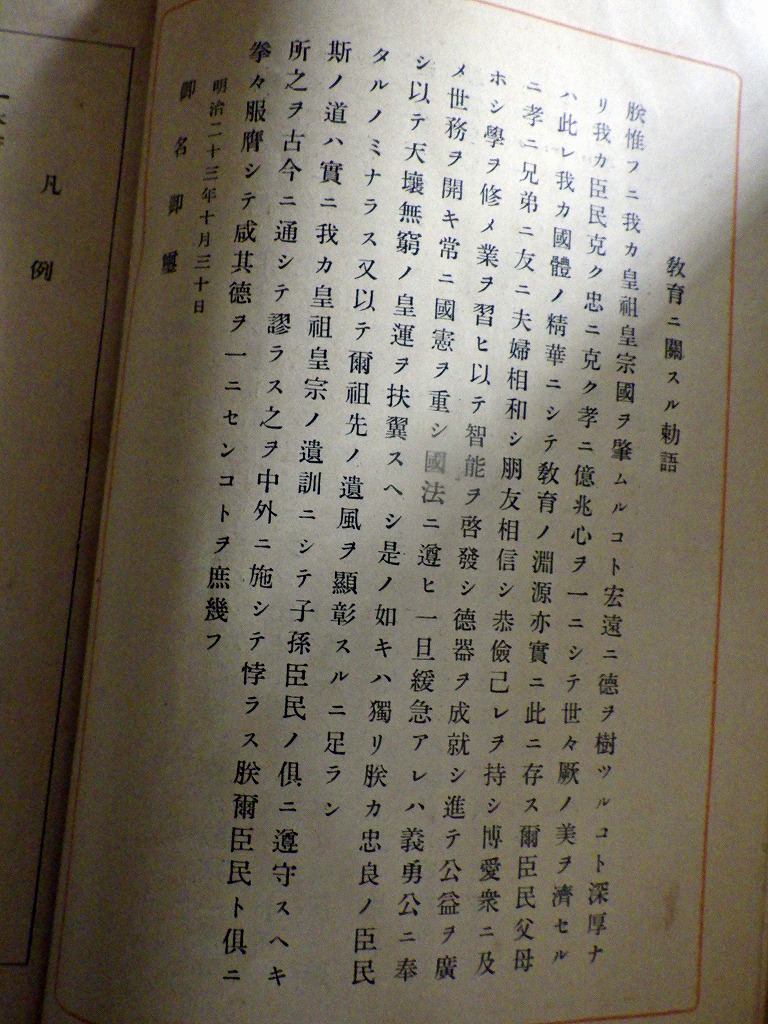 教育ニ關スル勅語
朕惟フニ我カ皇祖皇宗國ヲ肇ムルコト宏遠ニ德ヲ樹ツルコト深厚ナ
リ我カ臣民克ク忠ニ克ク孝ニ億兆心ヲ一ニシテ世々厥ノ美ヲ濟セル
ハ此レ我カ國體ノ精華ニシテ教育ノ淵源亦實ニ此ニ存ス爾臣民父母
ニ孝ニ兄弟ニ友ニ夫婦相和シ朋友相信シ恭儉己レヲ持シ博愛衆ニ及
ホシ學ヲ修メ業ヲ習ヒ以テ智能ヲ啓發シ德器ヲ成就シ進テ公益ヲ廣
メ世務ヲ開キ常ニ國憲ヲ重シ國法ニ遵ヒ一旦緩急アレハ義勇公ニ奉
シ以テ天壤無窮ノ皇運ヲ扶翼スヘシ是ノ如キハ獨リ朕カ忠良ノ臣民
タルノミナラス又以テ爾祖先ノ遺風ヲ顯彰スルニ足ラン
斯ノ道ハ實ニ我カ皇祖皇宗ノ遺訓ニシテ子孫臣民ノ俱ニ遵守スヘキ
所之ヲ古今ニ通シテ謬ラス之ヲ中外ニ施シテ悖ラス朕爾臣民ト俱ニ
拳々服膺シテ咸其德ヲ一ニセンコトヲ庶幾フ
明治二十三年十月三十日
御名御璽
凡例